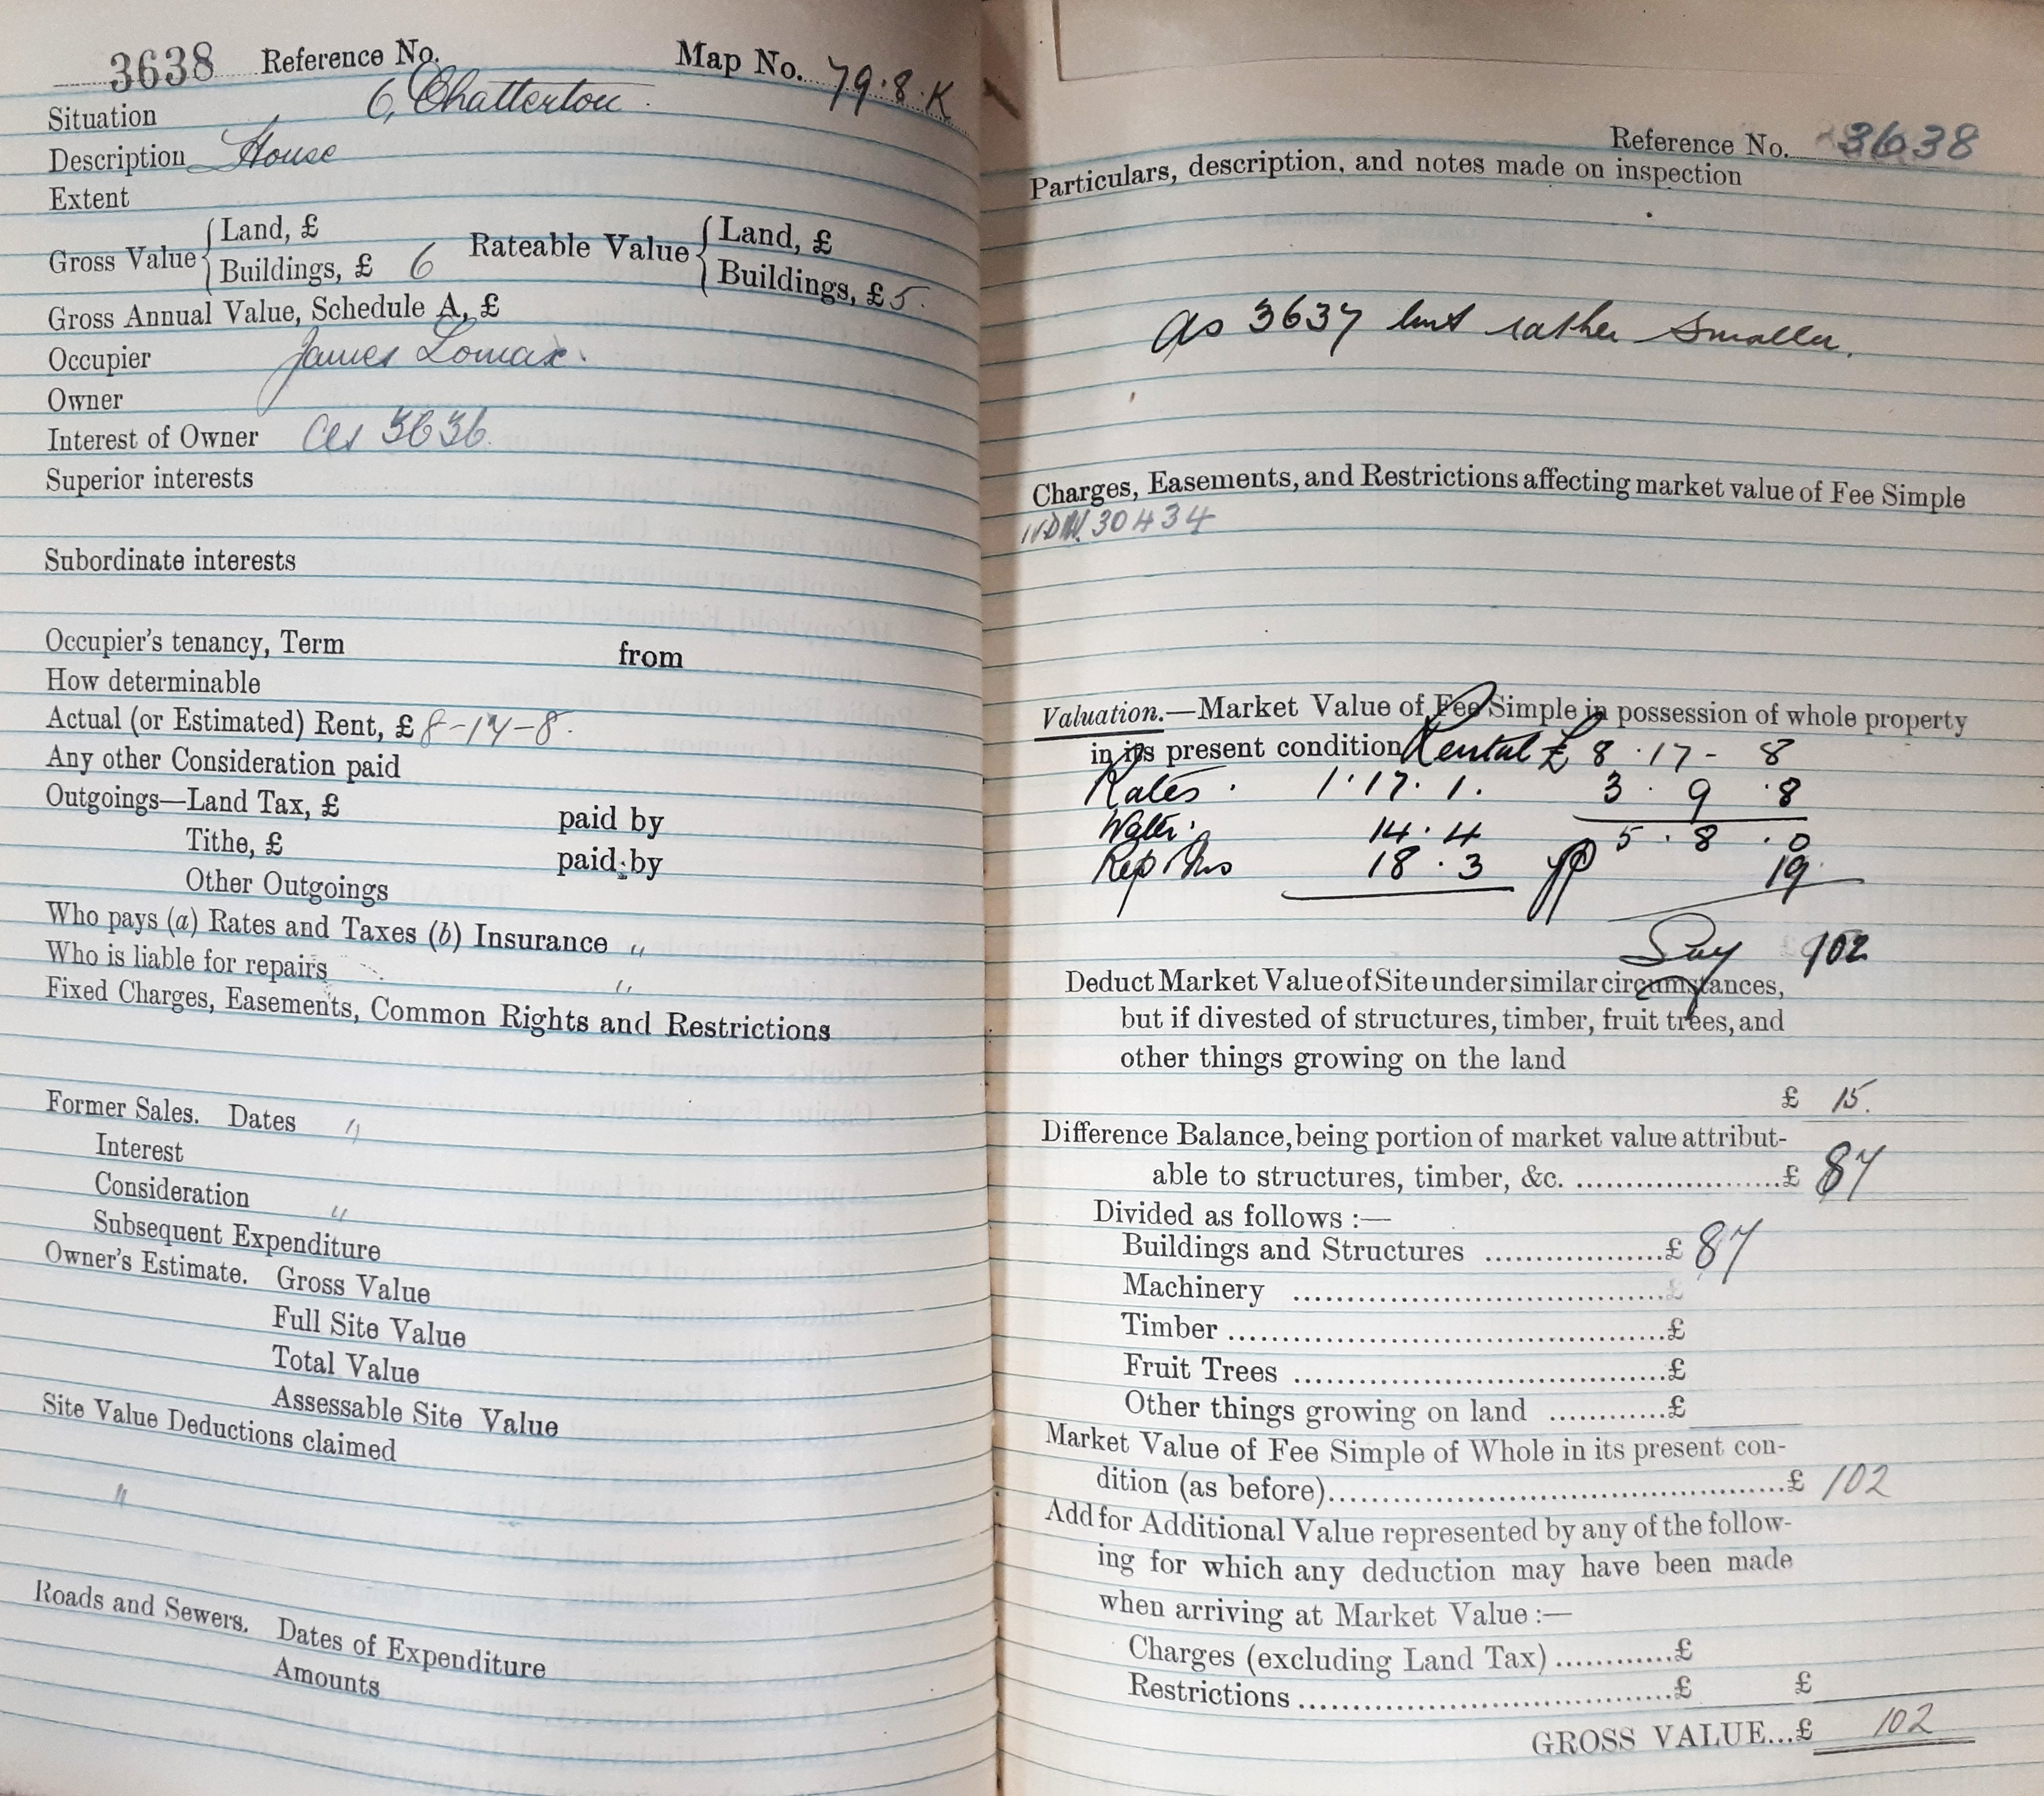 3638 Reference No. Map No. 79.8.K
Situation 6, Chatterton
Description House
Extent
Gross Value { Land, £ Rateable Value { Land, £
Buildings, £ 6 Buildings, £ 5.
Gross Annual Value, Schedule A, £
Occupier James Lomax.
Owner
Interest of Owner as 3636.
Superior interests
Subordinate interests
Occupier's tenancy, Term from
How determinable
Actual (or Estimated) Rent, £ 8-17-8.
Any other Consideration paid
Outgoings—Land Tax, £ paid by
Tithe, £ paid by
Other Outgoings
Who pays (a) Rates and Taxes (b) Insurance "
Who is liable for repairs "
Fixed Charges, Easements, Common Rights and Restrictions
Former Sales. Dates "
Interest
Consideration "
Subsequent Expenditure
Owner's Estimate. Gross Value
Full Site Value
Total Value
Assessable Site Value
Site Value Deductions claimed
"
Roads and Sewers. Dates of Expenditure
Amounts
Reference No. 3638
Particulars, description, and notes made on inspection
as 3637 but rather smaller.
Charges, Easements, and Restrictions affecting market value of Fee Simple
30434
Valuation.—Market Value of Fee Simple in possession of whole property
in its present condition Rental £ 8.17-8
Rates. 1.17.1. 3.9.8
Water. 14.4 5.8.0
Rep & Ins 18.3 yp 19
Say 102
Deduct Market Value of Site under similar circumstances,
but if divested of structures, timber, fruit trees, and
other things growing on the land
£ 15.
Difference Balance, being portion of market value attribut-
able to structures, timber, &c. ....................£ 87
Divided as follows :—
Buildings and Structures .................£ 87
Machinery ....................................£
Timber ..........................................£
Fruit Trees ....................................£
Other things growing on land ...........£
Market Value of Fee Simple of Whole in its present con-
dition (as before)..........................................£ 102
Add for Additional Value represented by any of the follow-
ing for which any deduction may have been made
when arriving at Market Value :—
Charges (excluding Land Tax) ...........£
Restrictions ....................................£ £
GROSS VALUE...£ 102